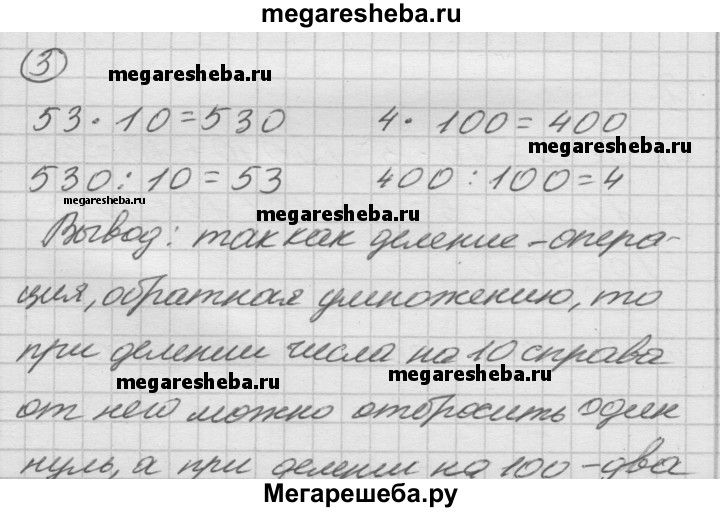 megaresheba.ru
3
megaresheba.ru
53 · 10 = 530 4 · 100 = 400
megaresheba.ru
530 : 10 = 53 400 : 100 = 4
megaresheba.ru
megaresheba.ru
Вывод: так как деление - опера-
ция, обратная умножению, то
при делении числа на 10 справа
megaresheba.ru
megaresheba.ru
от него можно отбросить один
нуль, а при делении на 100 - два
Мегарешеба.ру